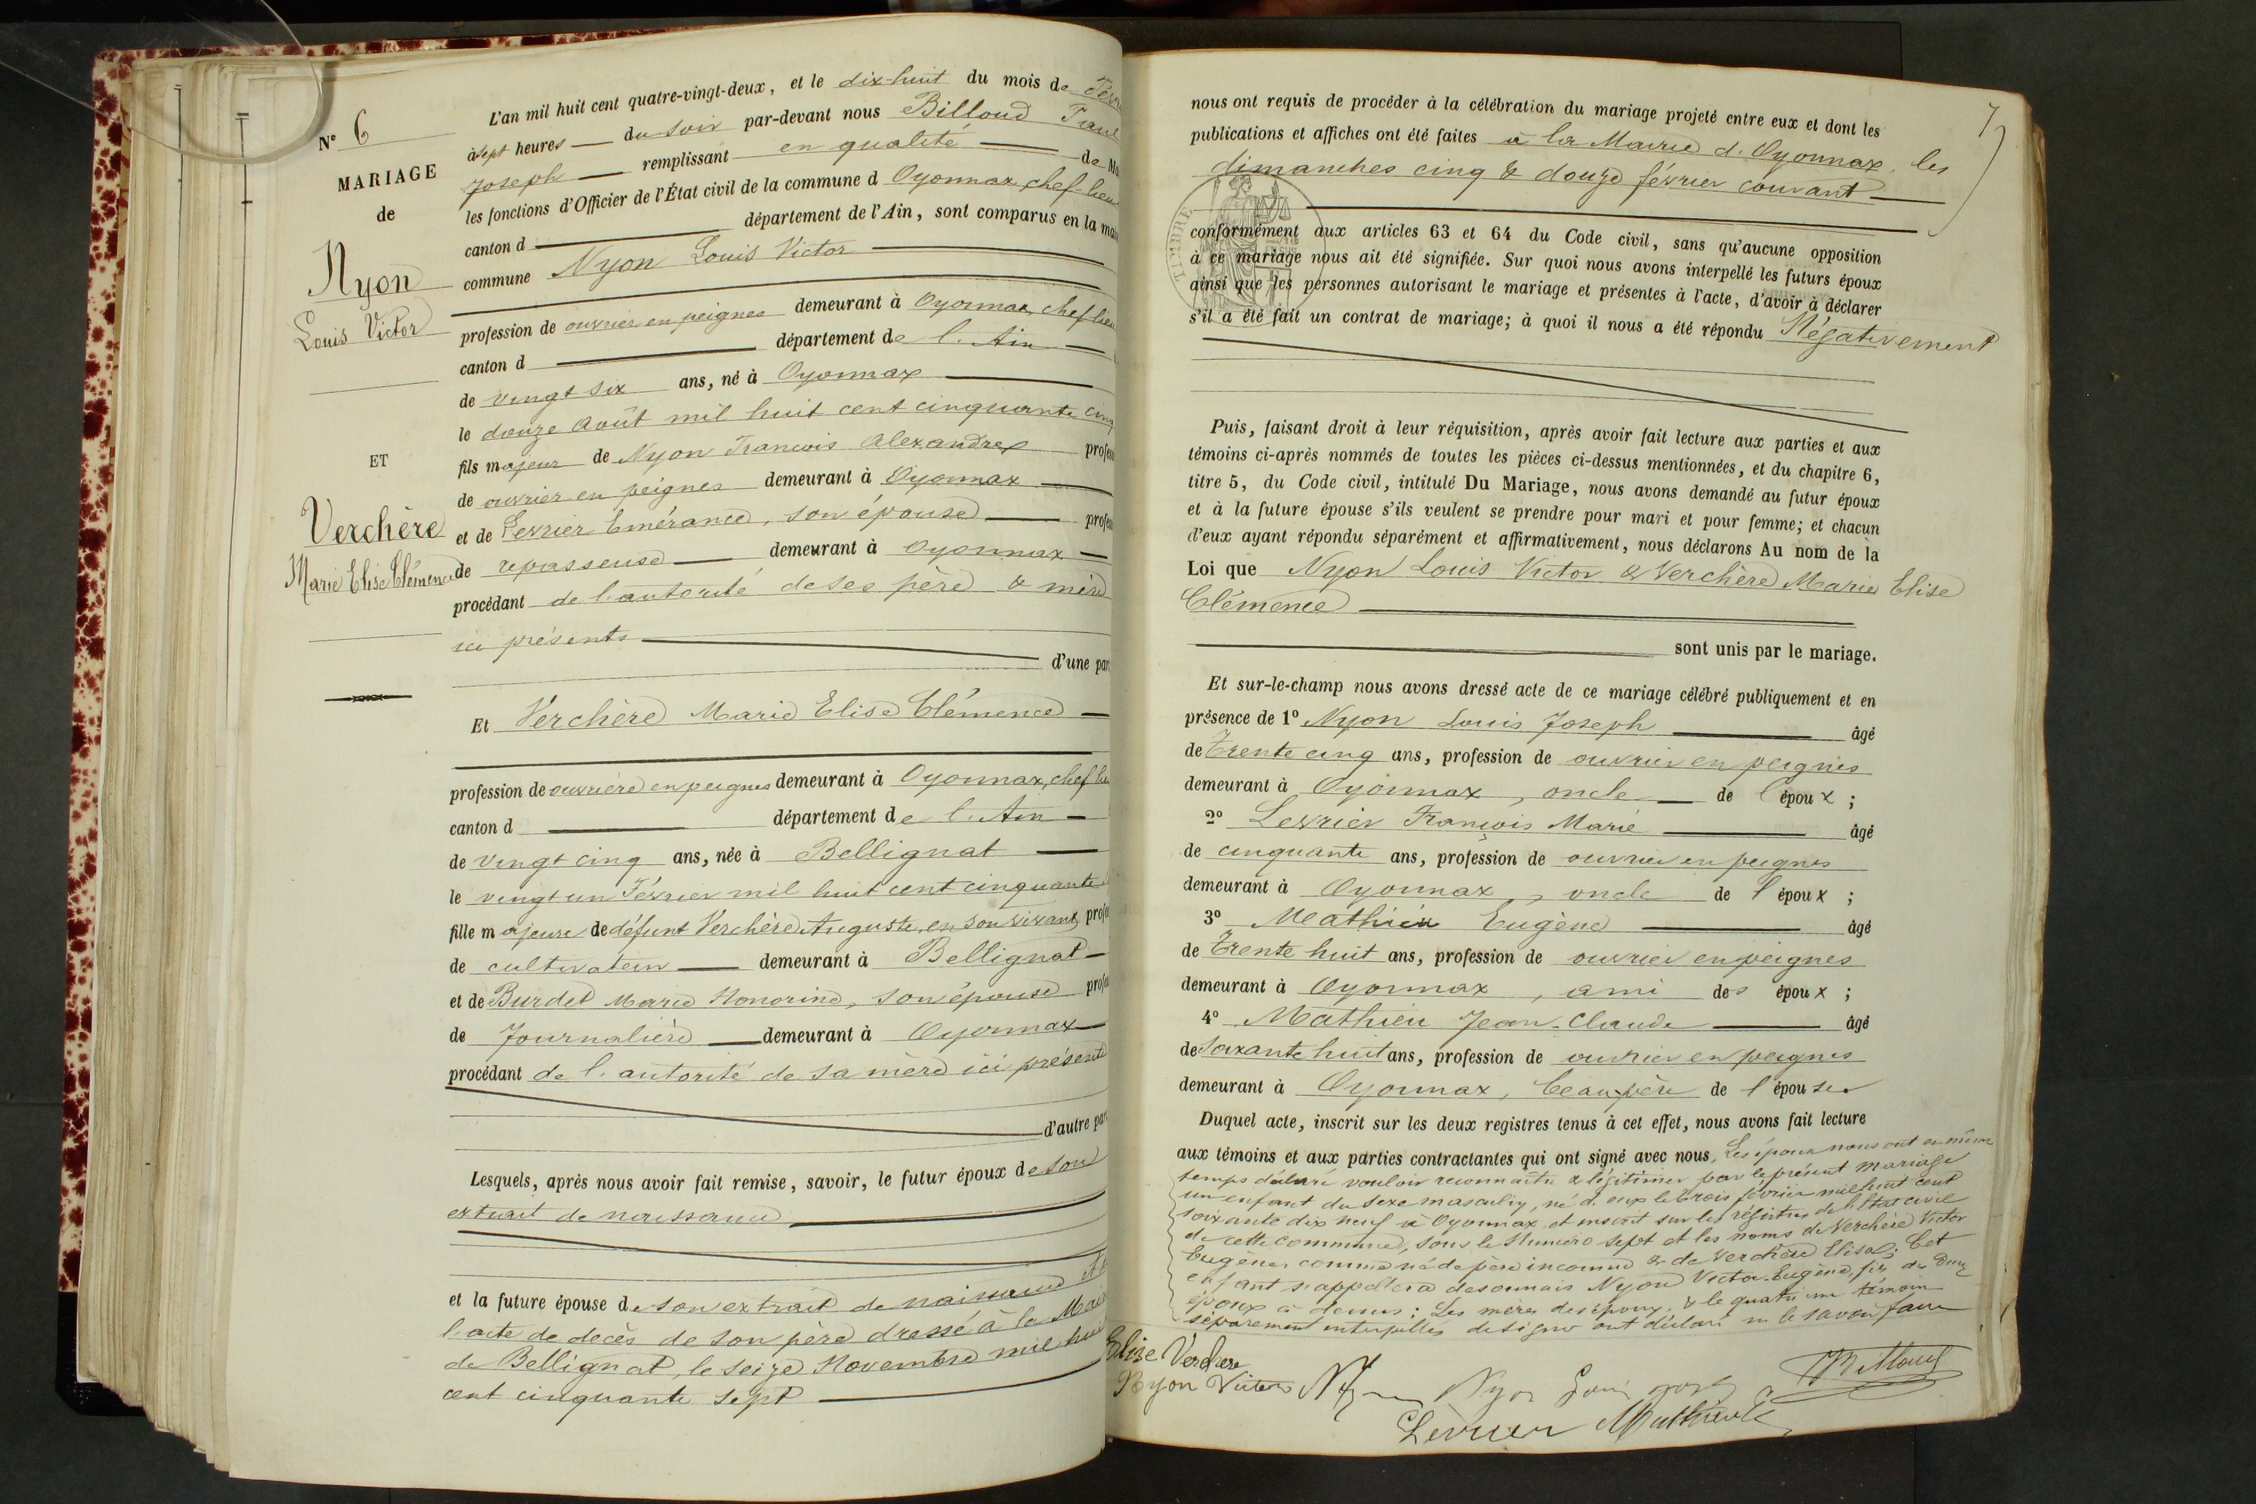 N° 6
MARIAGE
de
Nyon
Louis Victor
ET
Verchère
Marie Elise Clémence
L'an mil huit cent quatre-vingt-deux, et le dix-huit du mois de
à sept heures du soir par-devant nous Billoud
Joseph remplissant en qualité de
les fonctions d'Officier de l'État civil de la commune d Oyonnax, chef-lieu
canton d département de l'Ain, sont comparus en la
commune Nyon Louis Victor
profession de ouvrier en peignes demeurant à Oyonnax, chef lieu
canton d département de l'Ain
de vingt six ans, né à Oyonnax
le douze Août mil huit cent cinquante cinq
fils majeur de Nyon François Alexandre
de ouvrier en peignes demeurant à Oyonnax
et de Levrier Emérance, son épouse
de repasseuse demeurant à Oyonnax
procédant de l'autorité de ses père & mère
ici présents
d'une par
Et Verchère Marie Elise Clémence
profession de ouvrière en peignes demeurant à Oyonnax, chef
canton d département de l'Ain
de vingt cinq ans, née à Bellignat
le vingt un Février mil huit cent cinquante
fille majeure de défunt Verchère Auguste, en son vivant,
de cultivateur demeurant à Bellignat
et de Burdet Marie Honorine, son épouse
de Journalière demeurant à Oyonnax
procédant de l'autorité de sa mère ici présente
d'autre par
Lesquels, après nous avoir fait remise, savoir, le futur époux de son
extrait de naissance
et la future épouse de son extrait de naissance
l'acte de décès de son père dressé à la
de Bellignat, le seize Novembre mil huit
cent cinquante sept
7
nous ont requis de procéder à la célébration du mariage projeté entre eux et dont les
publications et affiches ont été faites à la Mairie d'Oyonnax, les
dimanches cinq & douze février courant
TIMBRE
conformément aux articles 63 et 64 du Code civil, sans qu'aucune opposition
à ce mariage nous ait été signifiée. Sur quoi nous avons interpellé les futurs époux
ainsi que les personnes autorisant le mariage et présentes à l'acte, d'avoir à déclarer
s'il a été fait un contrat de mariage; à quoi il nous a été répondu Négativement
Puis, faisant droit à leur réquisition, après avoir fait lecture aux parties et aux
témoins ci-après nommés de toutes les pièces ci-dessus mentionnées, et du chapitre 6,
titre 5, du Code civil, intitulé Du Mariage, nous avons demandé au futur époux
et à la future épouse s'ils veulent se prendre pour mari et pour femme; et chacun
d'eux ayant répondu séparément et affirmativement, nous déclarons Au nom de la
Loi que Nyon Louis Victor & Verchère Marie Elise
Clémence
sont unis par le mariage.
Et sur-le-champ nous avons dressé acte de ce mariage célébré publiquement et en
présence de 1° Nyon Louis Joseph âgé
de Trente cinq ans, profession de ouvrier en peignes
demeurant à Oyonnax, oncle de l'époux;
2° Levrier François Marie âgé
de cinquante ans, profession de ouvrier en peignes
demeurant à Oyonnax, oncle de l'époux;
3° Mathieu Eugène âgé
de Trente huit ans, profession de ouvrier en peignes
demeurant à Oyonnax, ami des époux;
4° Mathieu Jean-Claude âgé
de Soixante huit ans, profession de ouvrier en peignes
demeurant à Oyonnax, beau-père de l'épouse
Duquel acte, inscrit sur les deux registres tenus à cet effet, nous avons fait lecture
aux témoins et aux parties contractantes qui ont signé avec nous. Les époux nous ont en même
temps déclaré vouloir reconnaître & légitimer par le présent mariage
un enfant du sexe masculin, né d'eux le trois février mil huit cent
soixante dix neuf à Oyonnax, et inscrit sur les régistres de l'état civil
de cette commune, sous le Numéro sept et les noms de Verchère Victor
Eugène, comme né de père inconnu & de Verchère Elisa; Cet
enfant s'appellera désormais Nyon Victor Eugène, fils des
époux ci dessus: Les mères des époux, & le quatrième témoin
séparément interpellés de signer ont déclaré ne le savoir faire
Elise Verchere
Nyon Victor Nyon Nyon Louis Billoud
Levrier Mathieu